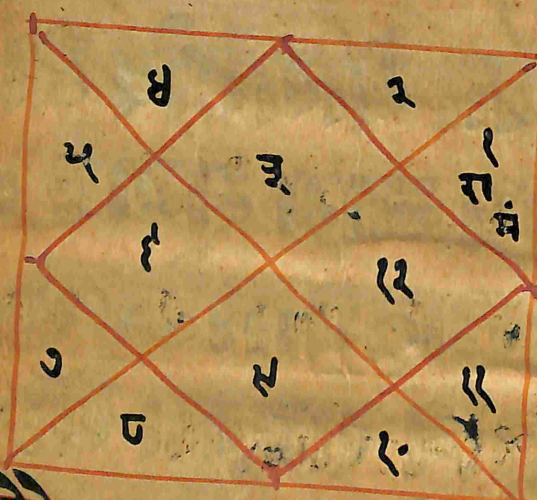 ४
२
५
३
१
रा
मं
६
१२
७
९
११
८
१०